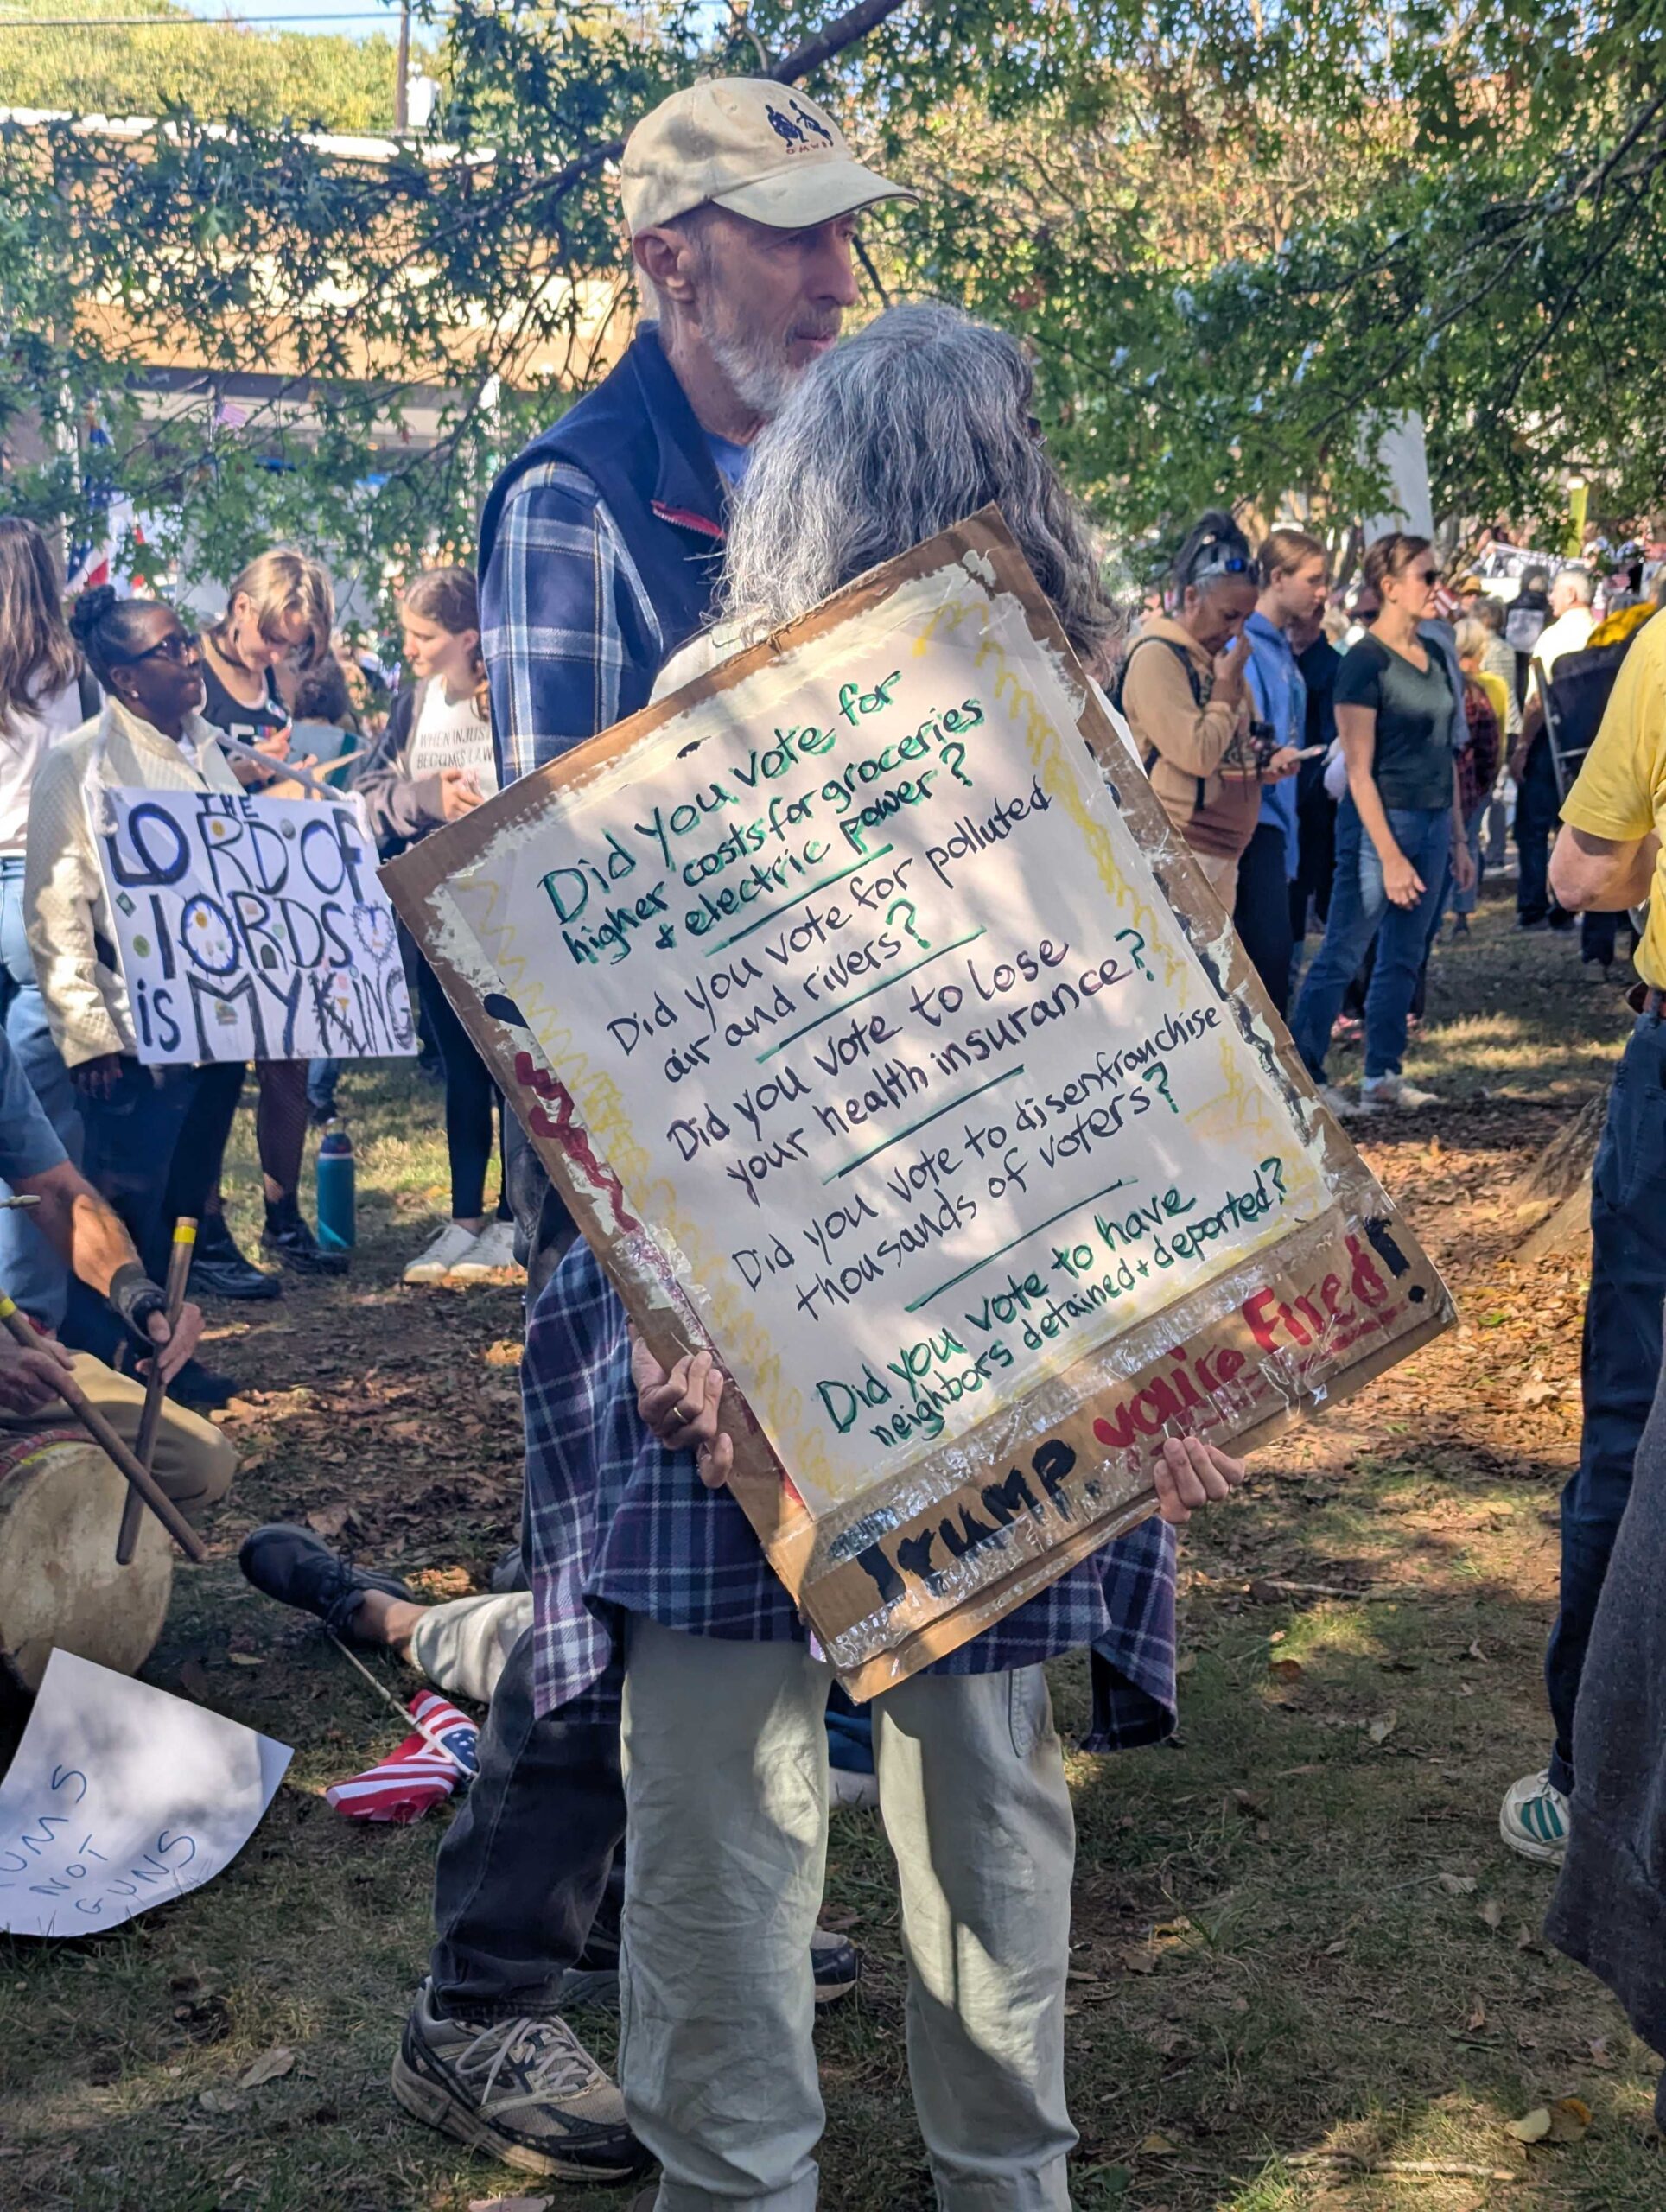 Did you vote for
higher costs for groceries
+ electric power?
Did you vote for polluted
air and rivers?
Did you vote to lose
your health insurance?
Did you vote to disenfranchise
thousands of voters?
Did you vote to have
neighbors detained + deported?
Trump, you're Fired!
THE
LORD OF
LORDS
is MY KING
WHEN
BECOMES LAW
NOT
GUNS